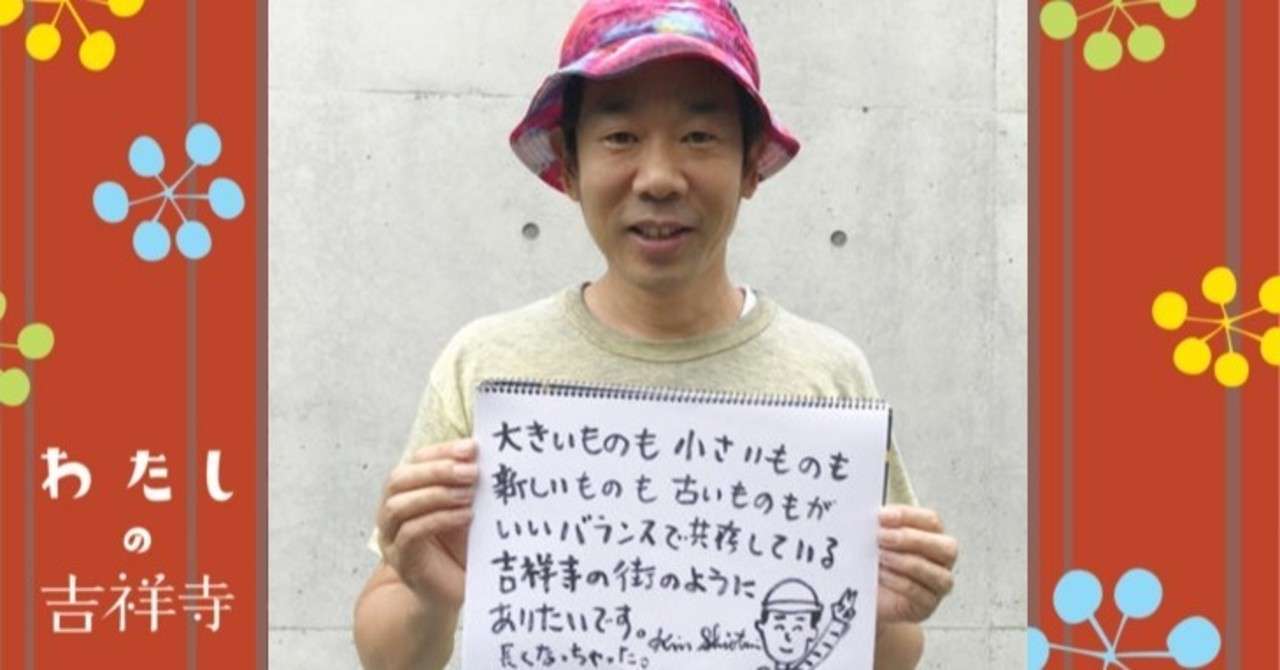 わたし
の
吉祥寺
大きいものも 小さいものも
新しいものも 古いものもが
いいバランスで共存している
吉祥寺の街のように
ありたいです。
長くなっちゃった。Kin Shiotani